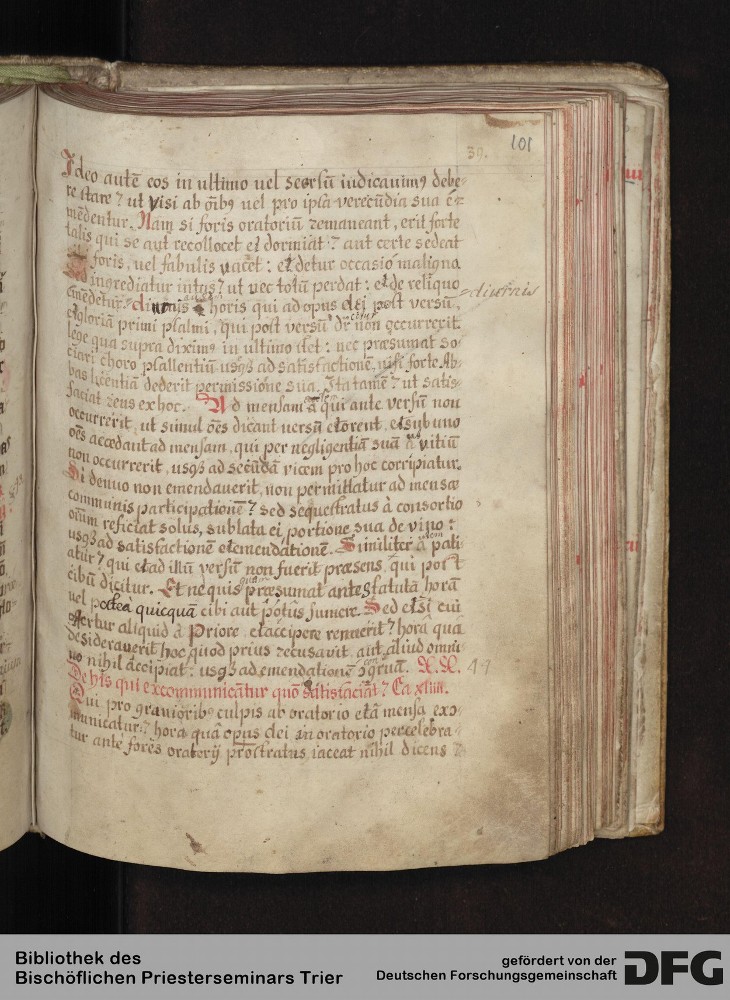 101
39.
Ideo autē eos in ultimo uel seorsū iudicauimꝰ debe-
re stare? ut visi ab oībꝰ uel pro ipsa verecūdia sua e-
mēdentur. Nam si foris oratoriū remaneant, erit forte
talis qui se aut recollocet et dormiat? aut certe sedeat
foris, uel fabulis vacet: et detur occasio maligno
ingrediatur intus? ut nec totū perdat: et de reliquo
emēdetur. horis qui ad opus dei post versū,
diurnis
et gloriā primi psalmi, qui post versū dr̄ non occurrerit.
lege qua supra diximꝰ in ultimo stet: nec præsumat so-
ciari choro psallentiū usqꝫ ad satisfactionē, nisi forte Ab-
bas licentiā dederit permissione sua. Ita tamē? ut satis-
faciat reus ex hoc. Ad mensam ā qui ante versū non
occurrerit, ut simul oēs dicant uersū et orent, et sub uno
oēs accedant ad mensam, qui per negligentiā suā vitiū
non occurrerit, usqꝫ ad secūdā vicem pro hoc corripiatur.
Si denuo non emendauerit, non permittatur ad mensæ
communis participationē? sed sequestratus à consortio
oīum reficiat solus, sublata ei portione sua de vino:
usqꝫ ad satisfactionē et emendationē. Similiter pati-
atur? qui et ad illū versū non fuerit præsens, qui post
cibū dicitur. Et ne quis præsumat ante statutā horā
uel postea quicquā cibi aut potus sumere. Sed et si cui
offertur aliquid à Priore, et accipere renuerit? horâ quâ
desiderauerit hoc quod prius recusavit, aut aliud omni-
no nihil accipiat: usqꝫ ad emendationē ɔgruā. N. N.
44
De his qui excommunicātur quō satisfaciāt? Ca xliiii.
Qui pro grauioribꝰ culpis ab oratorio et à mensa exco-
municatur? hora quâ opus dei in oratorio percelebra-
tur ante fores oratorij prostratus iaceat nihil dicens?
Bibliothek des
Bischöflichen Priesterseminars Trier
gefördert von der
Deutschen Forschungsgemeinschaft
DFG